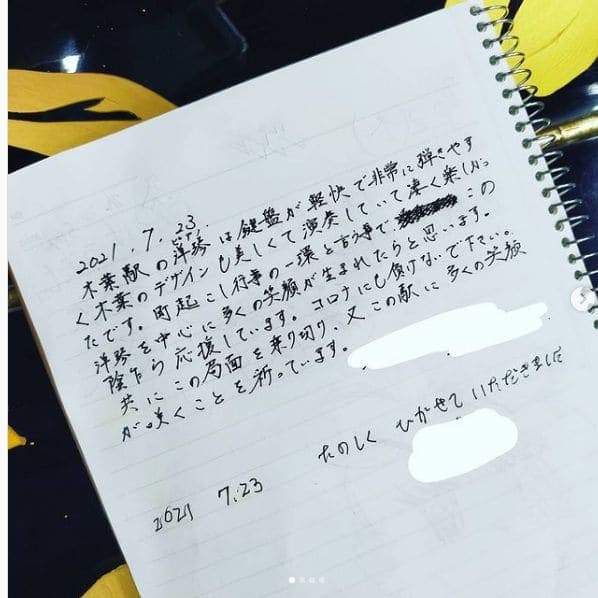 2021.7.23
木葉駅の洋琴は鍵盤が軽快で非常に弾きやす
く木葉のデザインも美しくて演奏していて凄く楽しかっ
たです。町起こし行事の一環と言う事で この
洋琴を中心に多くの笑顔が生まれたらと思います。
陰乍ら応援しています。コロナにも負けないで下さい。
共にこの局面を乗り切り、又この駅に多くの笑顔
が咲くことを祈っています。
たのしく ひかせて いただきました
2021 7.23